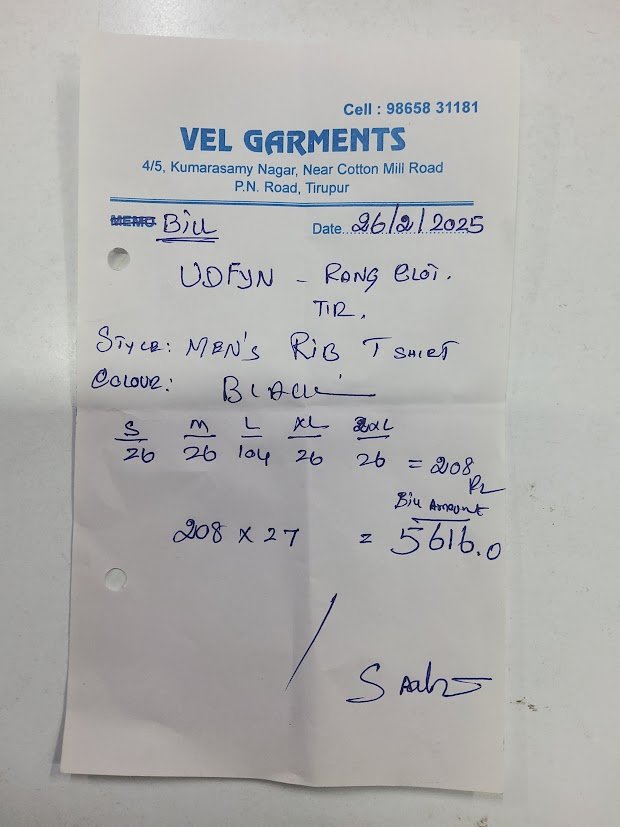 Cell : 98658 31181
VEL GARMENTS
4/5, Kumarasamy Nagar, Near Cotton Mill Road
P.N. Road, Tirupur
MEMO Bill
Date...26/2/2025
UDFYN - RANG CLOT.
TIR.
STYLE: MEN'S RIB T SHIRT
COLOUR: BLACK
S M L XL 2XL
26 26 104 26 26 = 208
Bill Amount
208 x 27 = 5616.0